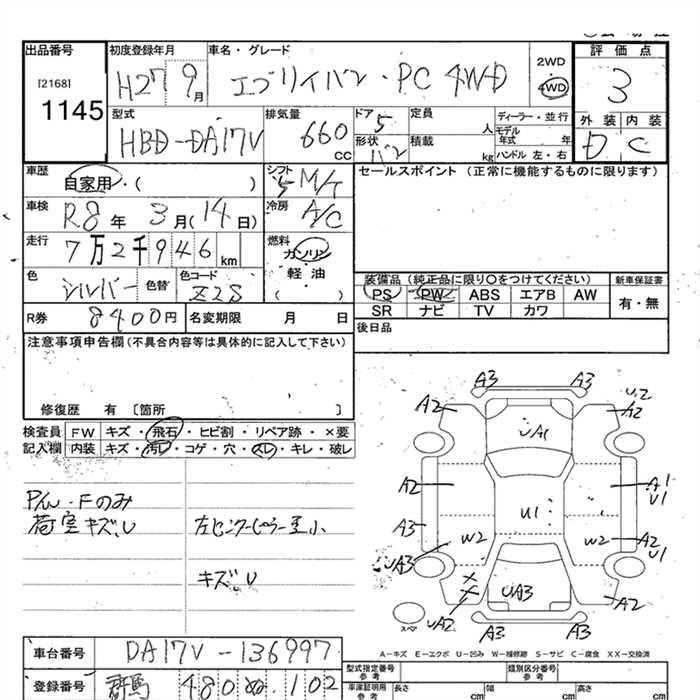 出品番号 初度登録年月 車名・グレード 2WD 評価点
[2168] H27 9月 エブリイバン・PC 4WD 4WD 3
1145
型式 排気量 ドア 5 定員 人 ディーラー・並行 外装 内装
HBD-DA17V 660 cc 形状 バン 積載 kg モデル年式 年 D C
ハンドル 左・右
車歴 自家用・( ) シフト 5 M/T セールスポイント (正常に機能するものに限ります)
車検 R8年 3月(14日) 冷房 A/C
走行 7万2千946km 燃料 ガソリン
軽油
( )
色 シルバー 色替 色コード Z2S
装備品 (純正品に限り○をつけてください) 新車保証書
PS PW ABS エアB AW 有・無
SR ナビ TV カワ
R券 8400円 名変期限 月 日
後日品
注意事項申告欄(不具合内容等は具体的に記入して下さい)
修復歴 有 〔箇所 〕
検査員 FW キズ・飛石・ヒビ割・リペア跡・×要
記入欄 内装 キズ・汚レ・コゲ・穴・スレ・キレ・破レ
P/W・Fのみ
荷室キズ、U
左センターピラー歪小
キズ、U
A3 A3
A2 U2
A2
UA1
A2 A1
U1
U1
A3
W2 W2 A2
U1
UA3
XX
UA3
UA2 A2
A3 A3
スペア
A-キズ E-エクボ U-凹み W-補修跡 S-サビ C-腐食 XX-交換済
車台番号 DA17V-136997
登録番号 群馬 480 ぬ 102
型式指定番号 参考 類別区分番号 参考
車庫証明用 参考 長さ cm 幅 cm 高さ cm